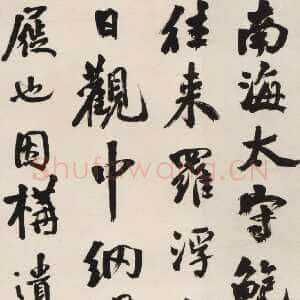 南海太守鮑
往来羅浮
日觀中網
履也因構遺
Shufawang.CN